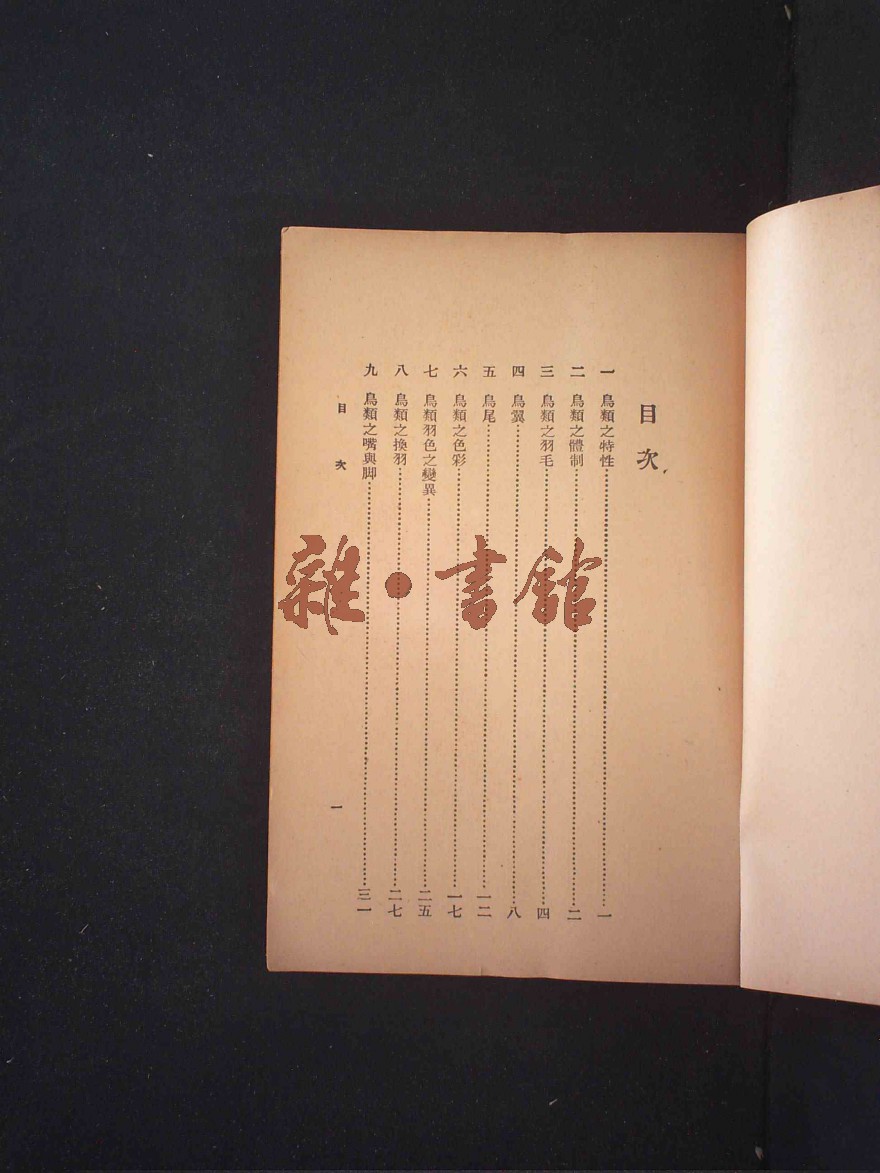 目次
一 鳥類之特性……一
二 鳥類之體制……二
三 鳥類之羽毛……四
四 鳥翼……八
五 鳥尾……一二
六 鳥類之色彩……一七
七 鳥類羽色之變異……二五
八 鳥類之換羽……二七
九 鳥類之嘴與脚……三一
目次
一
雜·書館